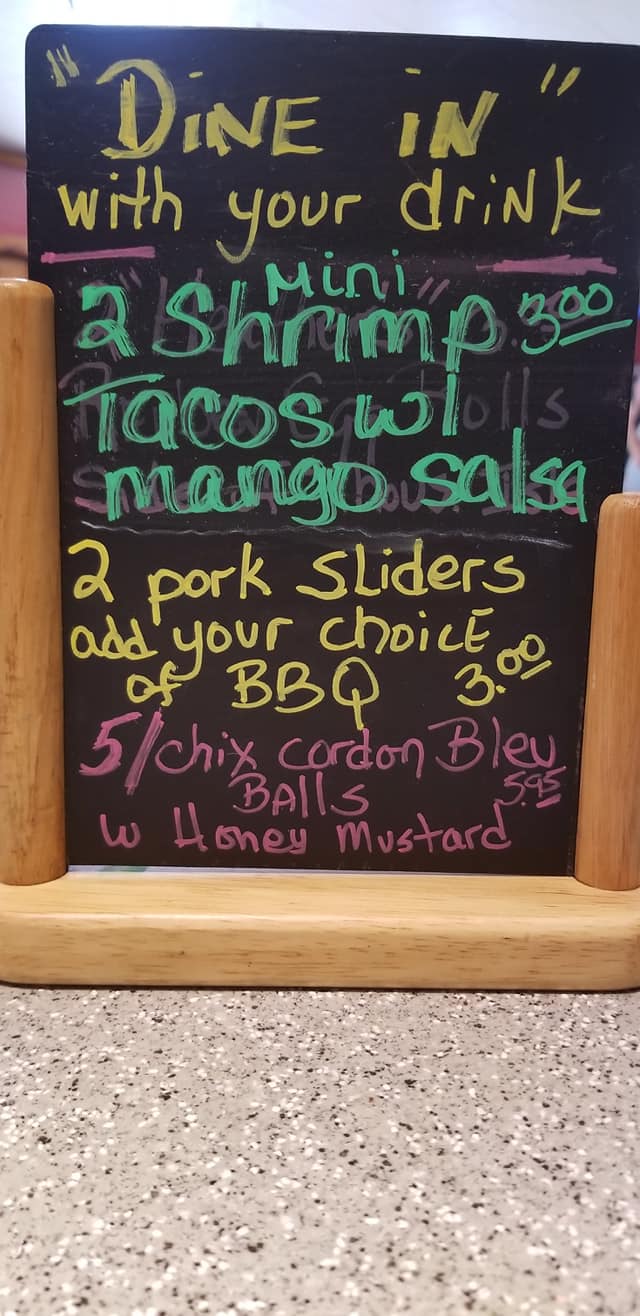 "DiNE iN"
with your driNk
Mini
2 Shrimp 3.00
Tacos w/
mango salsa
2 pork Sliders
add your choice
of BBQ 3.00
5/chix cordon Bleu
BAlls 5.95
w Honey Mustard